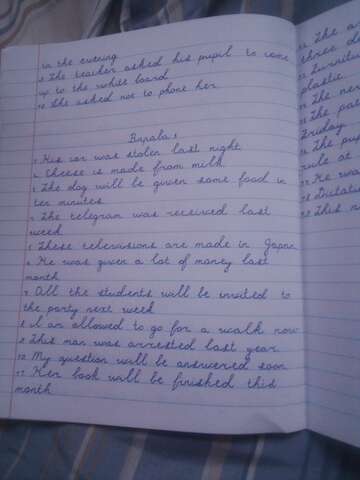 in the evening
9 The teacher asked his pupil to come
up to the white board
10 She asked not to phone her
1 His car was stolen last night
2 Cheese is made from milk
3 The dog will be given some food in
ten minutes
4 The telegram was received last
week
5 These televisions are made in Japan
6 He was given a lot of money last
month
7 All the students will be invited to
the party next week
8 I am allowed to go for a walk now
9 This man was arrested last year
10 My question will be answered soon
11 Her book will be finished this
month
The a
three da
Furnitur
plastic
The new
The pa
Friday
The pup
rule at
He was
Dictatio
This n